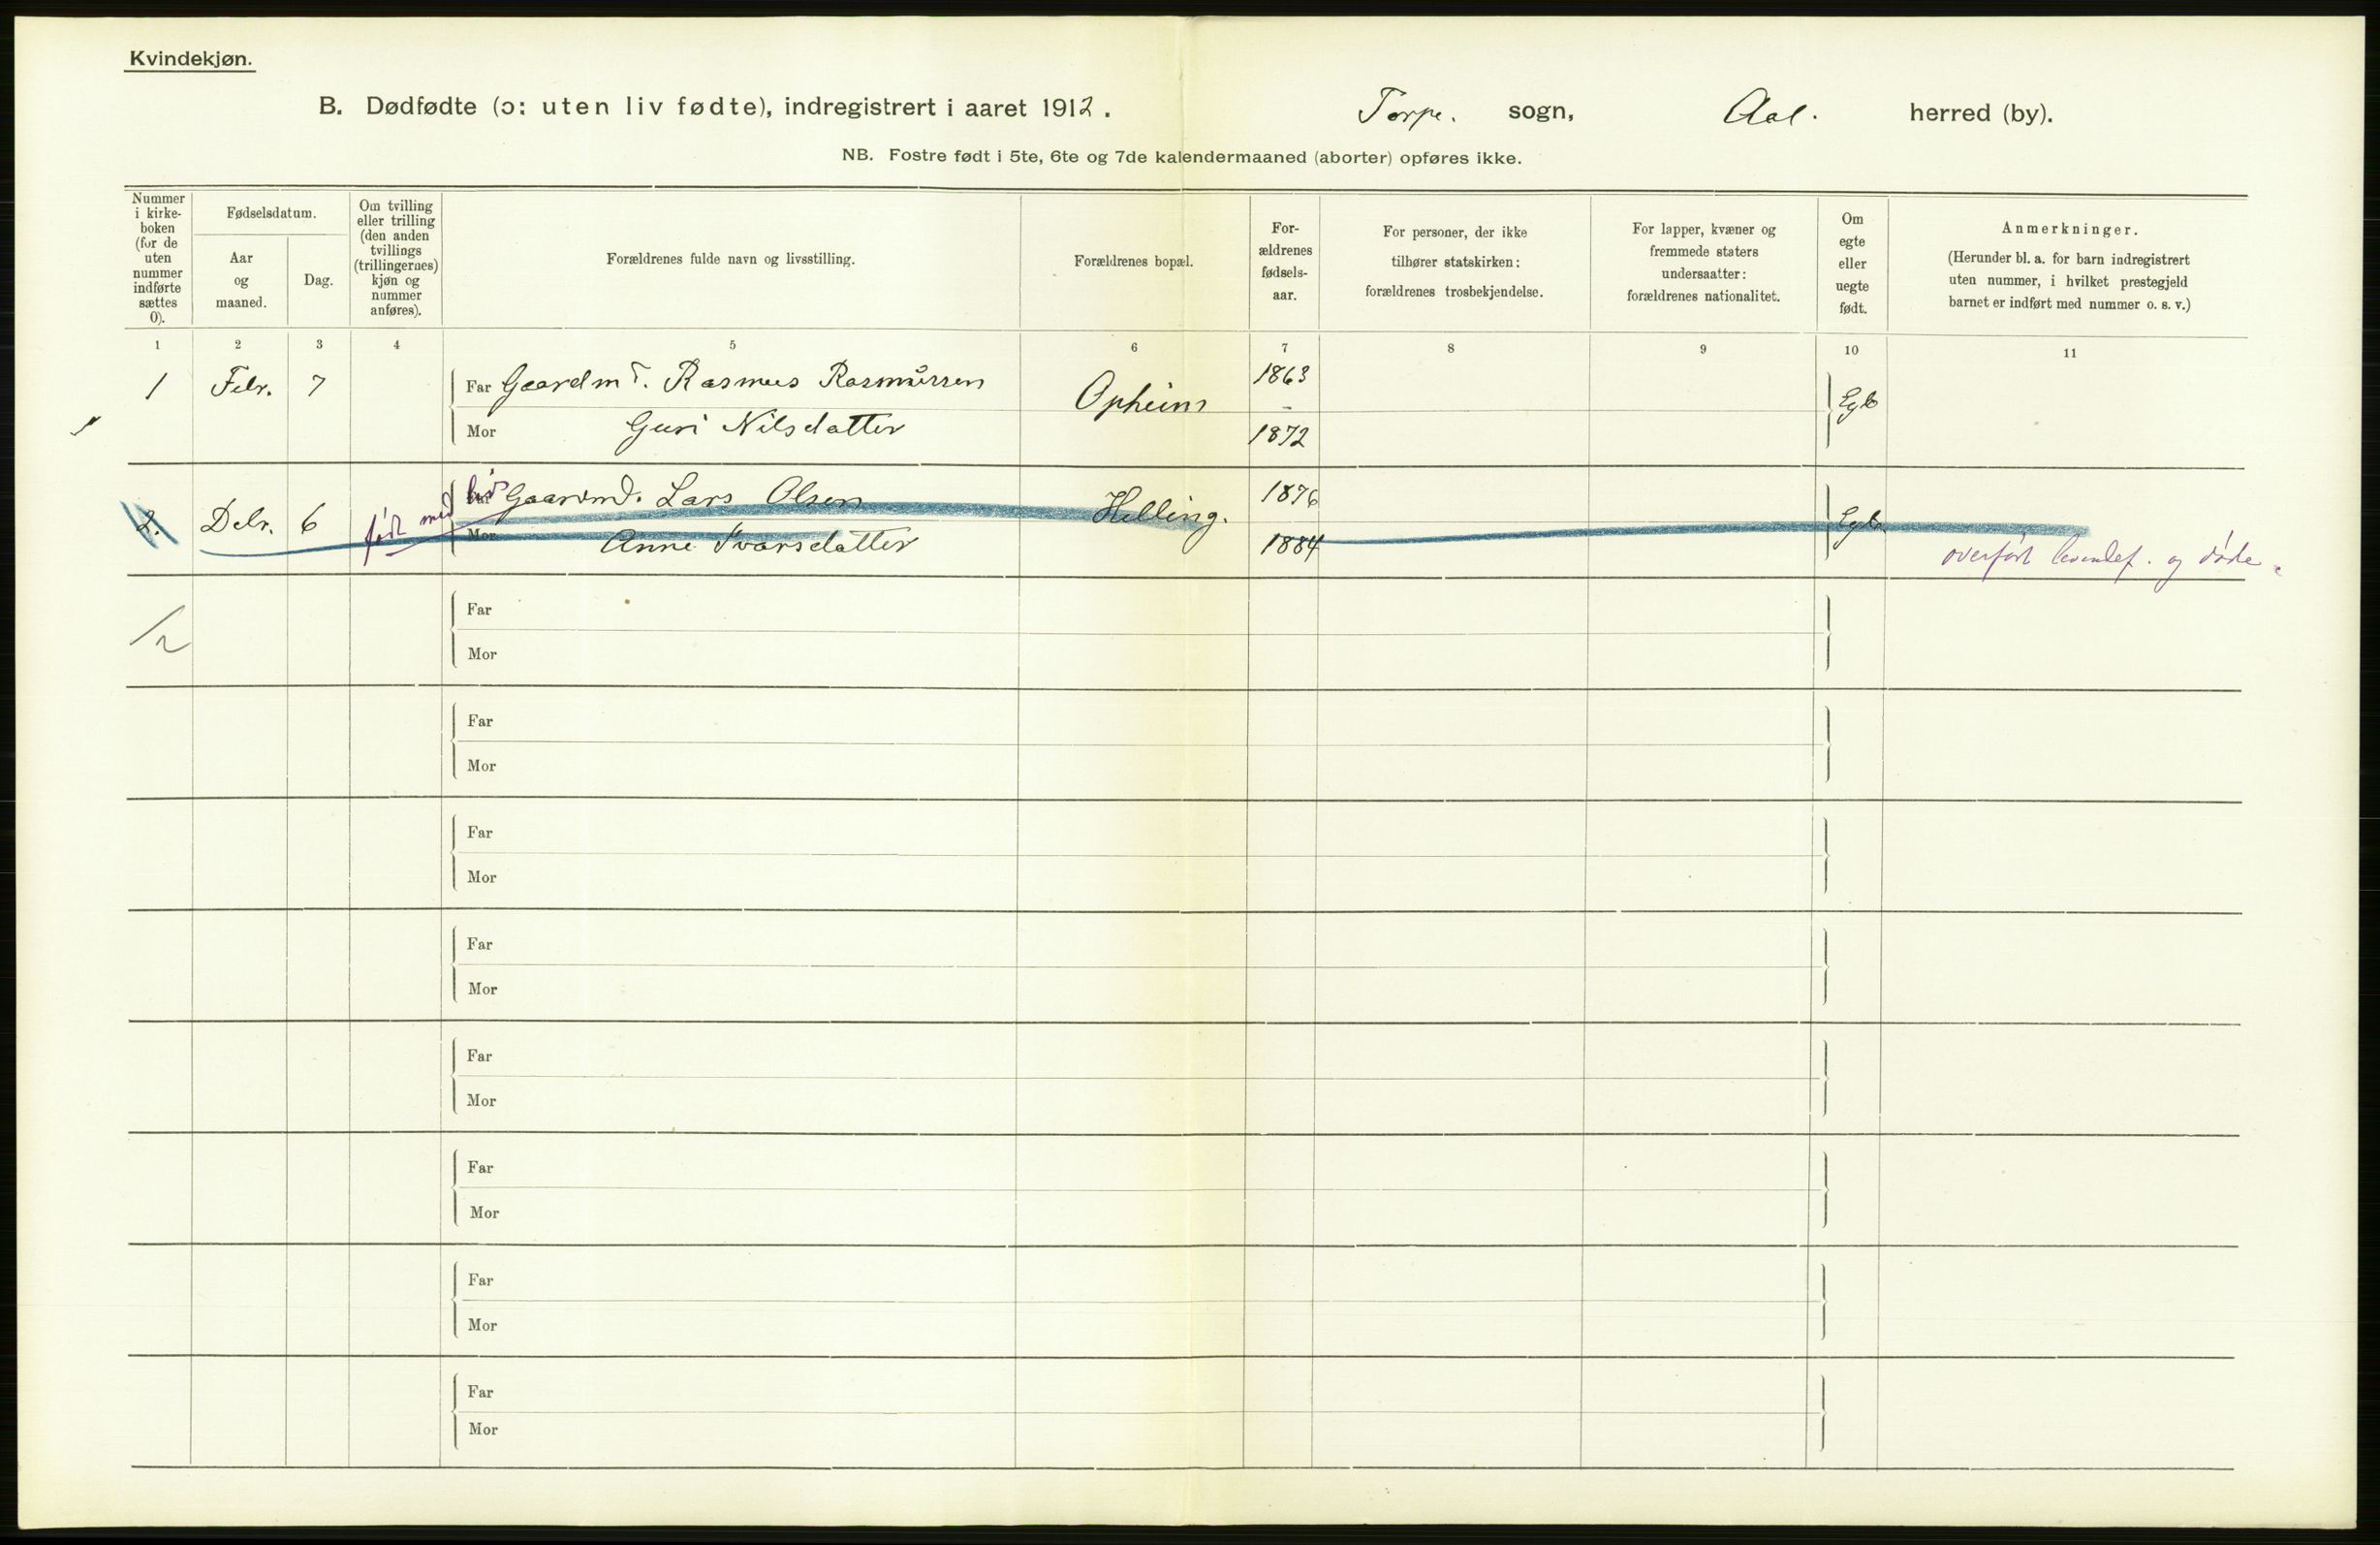 Kvindekjøn.
B. Dødfødte (ɔ: uten liv fødte), indregistrert i aaret 1912. Torpe. sogn, Aal. herred (by).
NB. Fostre født i 5te, 6te og 7de kalendermaaned (aborter) opføres ikke.
Nummer
i kirke-
boken
(for de
uten
nummer
indførte
sættes
0).
Fødselsdatum.
Aar
og
maaned.
Dag.
Om tvilling
eller trilling
(den anden
tvillings
(trillingernes)
kjøn og
nummer
anføres).
Forældrenes fulde navn og livsstilling.
Forældrenes bopæl.
For-
ældrenes
fødsels-
aar.
For personer, der ikke
tilhører statskirken:
forældrenes trosbekjendelse.
For lapper, kvæner og
fremmede staters
undersaatter:
forældrenes nationalitet.
Om
egte
eller
uegte
født.
Anmerkninger.
(Herunder bl. a. for barn indregistrert
uten nummer, i hvilket prestegjeld
barnet er indført med nummer o. s. v.)
1 2 3 4 5 6 7 8 9 10 11
1 Febr. 7 Far Gaardm d. Rasmus Rasmussen Opheim 1863 Egte
-
Mor Guri Nilsdatter 1872
2. Debr. 6 født med liv Far Gaardmd. Lars Olsen Helling. 1876 Egte
Mor Anne Ivarsdatter 1884 overført levendef. og døde.
1/2
Far
Mor
Far
Mor
Far
Mor
Far
Mor
Far
Mor
Far
Mor
Far
Mor
Far
Mor